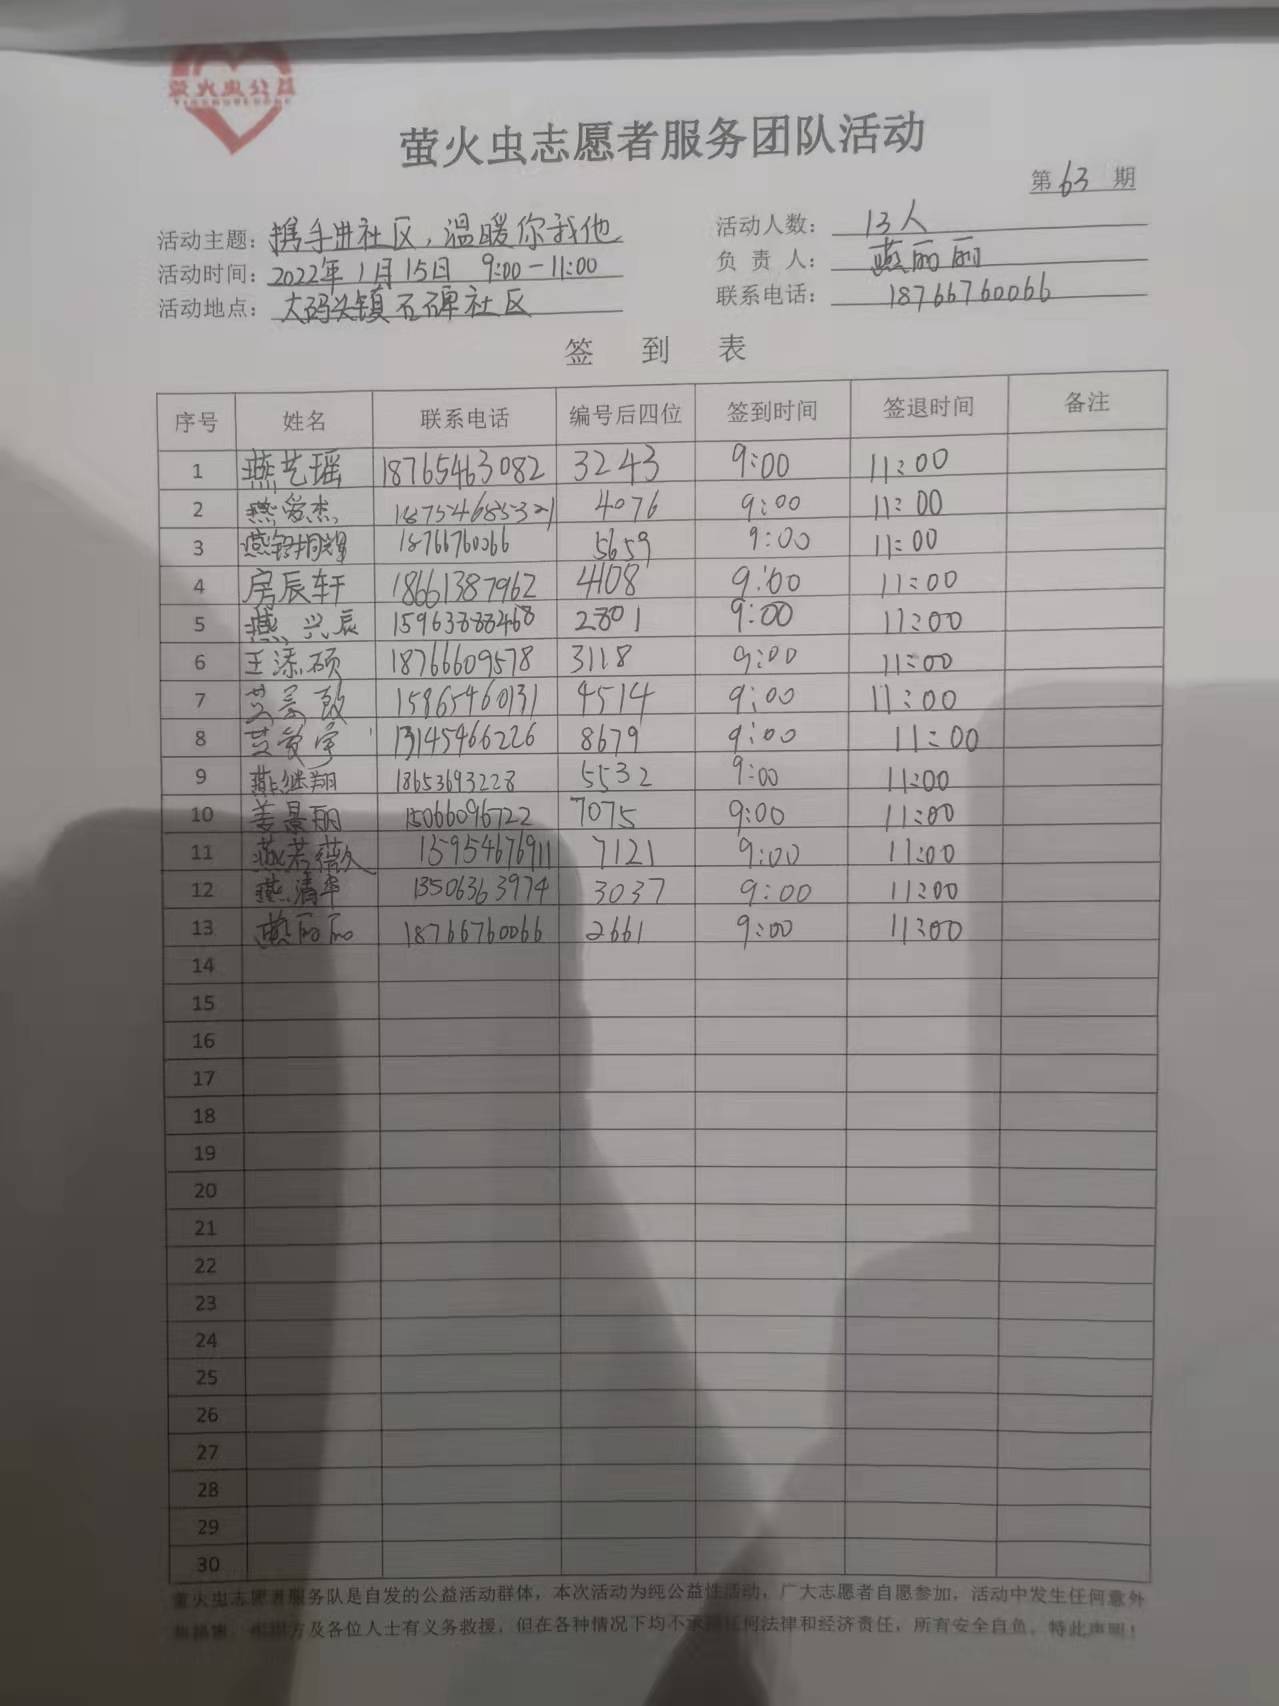 萤火虫公益
萤火虫志愿者服务团队活动
第63期
活动主题：携手进社区，温暖你我他
活动人数：13人
活动时间：2022年1月15日 9:00-11:00
负责人：燕丽丽
活动地点：大码头镇石碑社区
联系电话：18766760066
签到表
序号 姓名 联系电话 编号后四位 签到时间 签退时间 备注
1 燕艺瑶 18765463082 3243 9:00 11:00
2 燕爱杰 18754685321 4076 9:00 11:00
3 燕 18766760066 5659 9:00 11:00
4 房辰轩 18661387962 4108 9:00 11:00
5 燕兴辰 15963888468 2801 9:00 11:00
6 王添硕 18766609578 3118 9:00 11:00
7 15865460131 4514 9:00 11:00
8 13145466226 8679 9:00 11:00
9 燕继翔 18653693228 5532 9:00 11:00
10 姜景丽 15066096722 7075 9:00 11:00
11 燕若薇 13954676911 7121 9:00 11:00
12 燕清华 13506363974 3037 9:00 11:00
13 燕丽丽 18766760066 2661 9:00 11:00
14
15
16
17
18
19
20
21
22
23
24
25
26
27
28
29
30
萤火虫志愿者服务队是自发的公益活动群体，本次活动为纯公益性活动，广大志愿者自愿参加，活动中发生任何意外
方及各位人士有义务救援，但在各种情况下均不承担任何法律和经济责任，所有安全自负。特此声明！